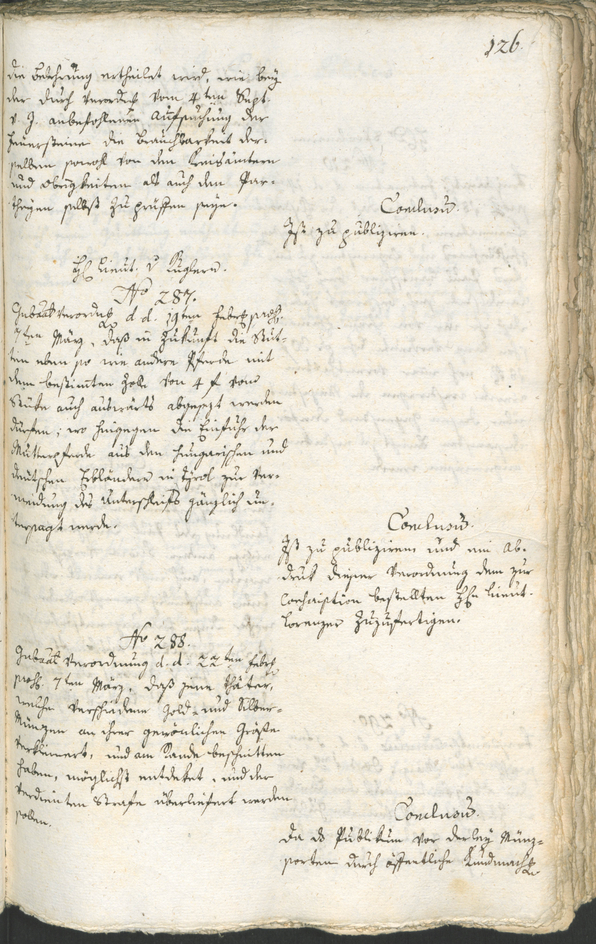 126.
die Belehrung ertheilet wird, wie bey
der durch Verordng vom 4ten Sept.
v. J. anbefohlenen Aufsuchung der
Feuersteine die Brauchbarkeit der-
selben sowohl von den Kreisämtern
und Obrigkeiten als auch den Par-
theyen selbst zu prüffen seye.
Conclusum.
Ist zu publiziren.
H Lieut. v Kuglern.
No 287.
Gubaalverordng d. d. 19ten Febr
7ten März, daß in Zukunft die Stut-
ten eben so wie andere Pferde mit
dem bestimten Zoll von 4 f vom
Stücke auch auswärts abgesezt werden
dürfen; wo hingegen die Einfuhr der
Mutterpferde aus den Hungarischen und
deutschen Erbländern in Tyrol zur Ver-
meidung des Unterschleifs gänzlich un-
tersagt werde.
Conclusum.
Ist zu publiziren und ein Ab-
druk dieser Verordnung dem zur
Conscription bestellten H Lieut.
Lorenzer zuzufertigen.
No 288.
Gubaal Verordnung d. d. 22ten Febr
7ten März, daß jene Thäter,
welche verschiedene Gold- und Silber-
Münzen an ihrer gewönlichen Größe
verkümert, und am Rande beschnitten
haben, möglichst entdeket, und der
verdienten Strafe überliefert werden
sollen.
Conclusum.
Da ds Publikum vor derley Münz-
sorten durch öffentliche Kundmachg